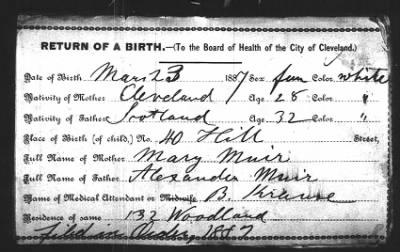 RETURN OF A BIRTH.—(To the Board of Health of the City of Cleveland.)
Date of Birth Mar 23 1887 Sex fem Color white
Nativity of Mother Cleveland Age 28 Color "
Nativity of Father Scotland Age 32 Color "
Place of Birth (of child,) No. 40 Hill Street,
Full Name of Mother Mary Muir
Full Name of Father Alexander Muir
Name of Medical Attendant or Midwife B
Residence of same 132 Woodland
filed in 1887